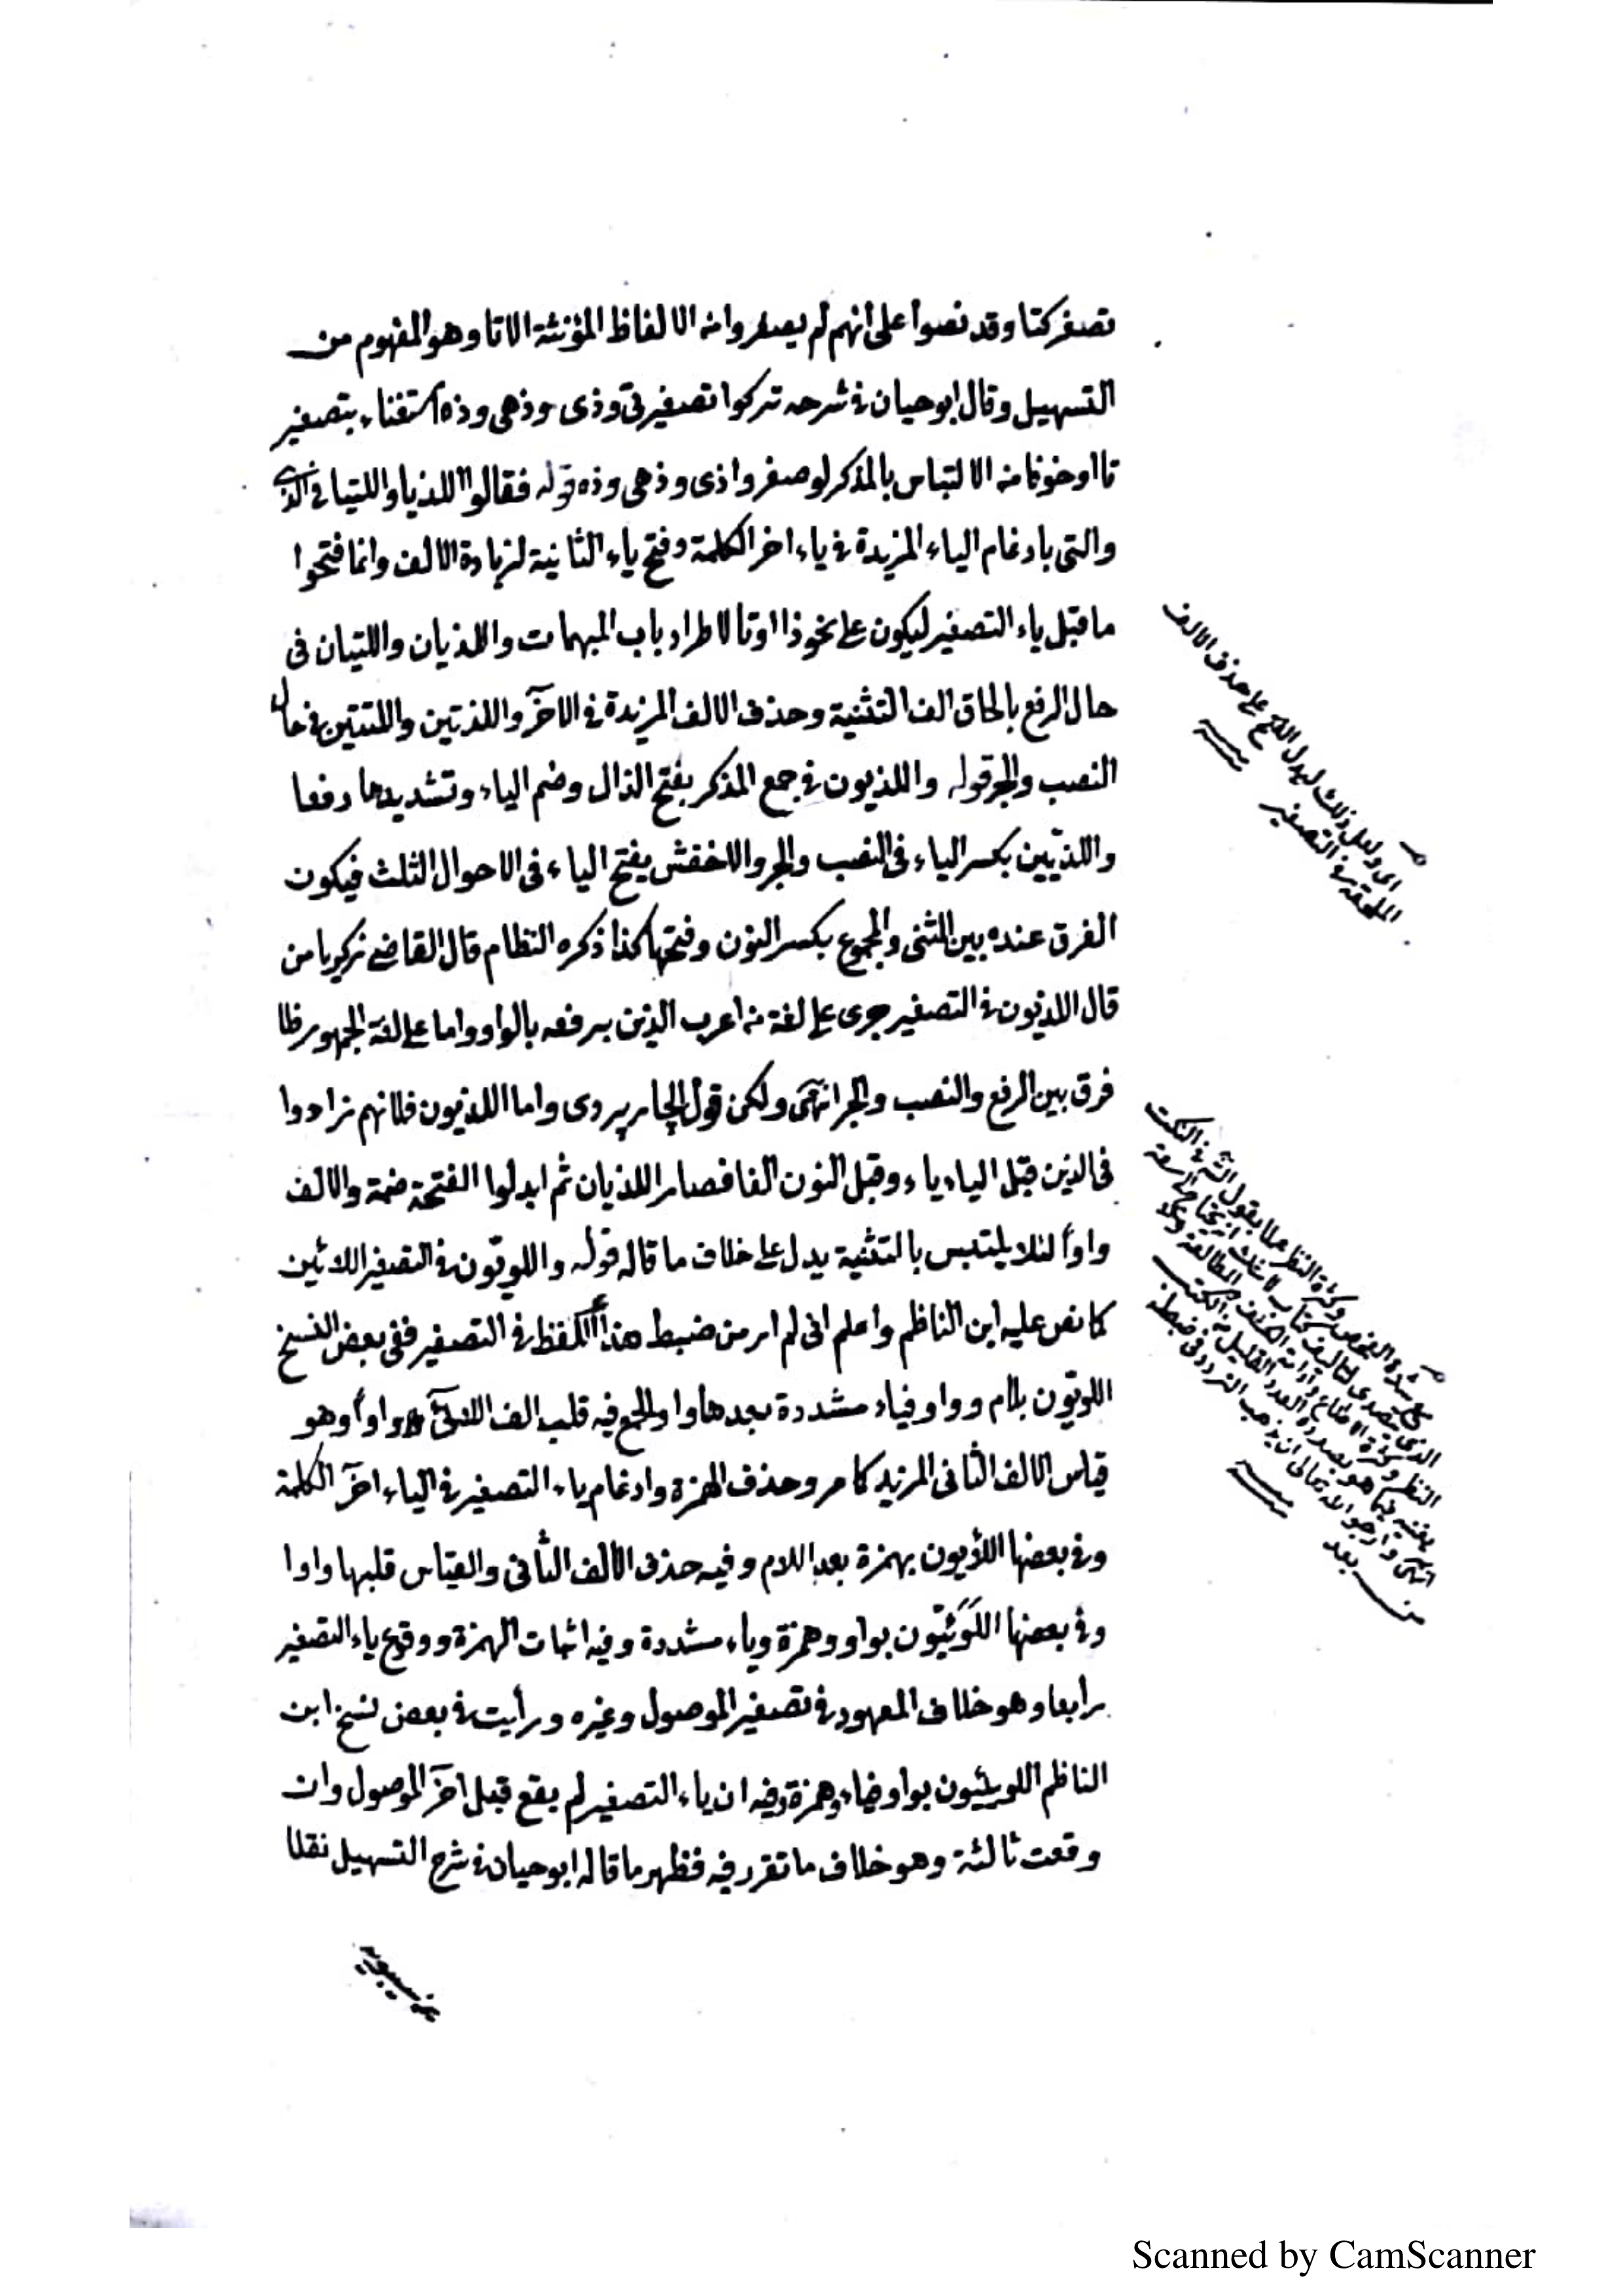 تصغر كتا وقد نصوا على أنهم لم يصغروا من الالفاظ المؤنثة الا تا وهو المفهوم من
التسهيل وقال ابو حيان في شرحه تركوا تصغير تي وذي وذهي وذه استغناء بتصغير
تا او خوفا من الالتباس بالمذكر لو صغروا ذي وذهي وذه قوله فقالوا اللذيا واللتيا في الذي
والتي بادغام الياء المزيدة في ياء اخر الكلمة وفتح ياء الثانية لزيادة الالف وانما فتحوا
ما قبل ياء التصغير ليكون على نحو ذا اوتا لاطراد باب المبهمات واللذيان واللتيان في
حال الرفع بالحاق الف التثنية وحذف الالف المزيدة في الآخر واللذيين واللتيين في حال
النصب والجر قوله واللذيون في جمع المذكر بفتح الذال وضم الياء وتشديدها رفعا
واللذيّين بكسر الياء في النصب والجر والاخفش يفتح الياء في الاحوال الثلث فيكون
الفرق عنده بين المثنى والمجموع بكسر النون وفتحها كذا ذكره النظام قال القاضي زكريا من
قال اللذيون في التصغير جرى على لغة من اعرب الذين برفعه بالواو واما على لغة الجمهور فلا
فرق بين الرفع والنصب والجر انتهى ولكن قول الجاربردي واما اللذيون فلانهم زادوا
في الذين قبل الياء ياء وقبل النون الفا فصار اللذيان ثم ابدلوا الفتحة ضمة والالف
واواً لئلا يلتبس بالتثنية يدل على خلاف ما قاله قوله واللويّون في التصغير اللائين
كما نص عليه ابن الناظم واعلم اني لم ار من ضبط هذا اللفظ في التصغير ففي بعض النسخ
اللويّون بلام وواو فياء مشددة بعدها واو الجمع فيه قلب الف اللائي واواً وهو
قياس الالف الثاني المزيد كما مر وحذف الهمزة وادغام ياء التصغير في الياء آخر الكلمة
وفي بعضها اللأيون بهمزة بعد اللام وفيه حذف الالف الثاني والقياس قلبها واوا
وفي بعضها اللَّوَئيّون بواو وهمزة وياء مشددة وفيه اثبات الهمزة ووقوع ياء التصغير
رابعا وهو خلاف المعهود في تصغير الموصول وغيره ورأيت في بعض نسخ ابن
الناظم اللويئيون بواو فياء وهمزة وفيه ان ياء التصغير لم يقع قبل آخر الموصول وان
وقعت ثالثة وهو خلاف ما تقرر فيه فظهر ما قاله ابو حيان في شرح التسهيل نقلا
عن سيبويه
اي ولعل ذلك ليدل الفتح على حذف الالف
الملحقة في التصغير
مع شدة الفحص وكثرة النظر عملا بقول الش في النكت
الذي يتصدى لتاليف كتاب لا شك انه يحتاج الى سعة
النظر وكثرة الاطلاع وادامة المطالعة
يغنيه فيما هو بصدده العدد القليل من الكتب
انتهى وارجو الله تعالى ان يذهب التردد في ضبطه
من بعد
Scanned by CamScanner